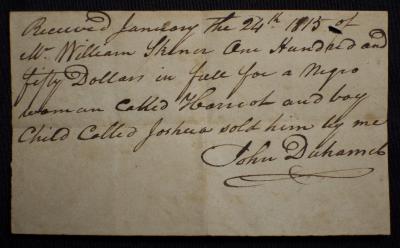 Received January the 24th 1815 of
Mr. William Skener One Hundred and
fifty Dollars in full for a Negro
woman Called Harriot and boy
Child Called Joshua sold him by me
John Duhamel